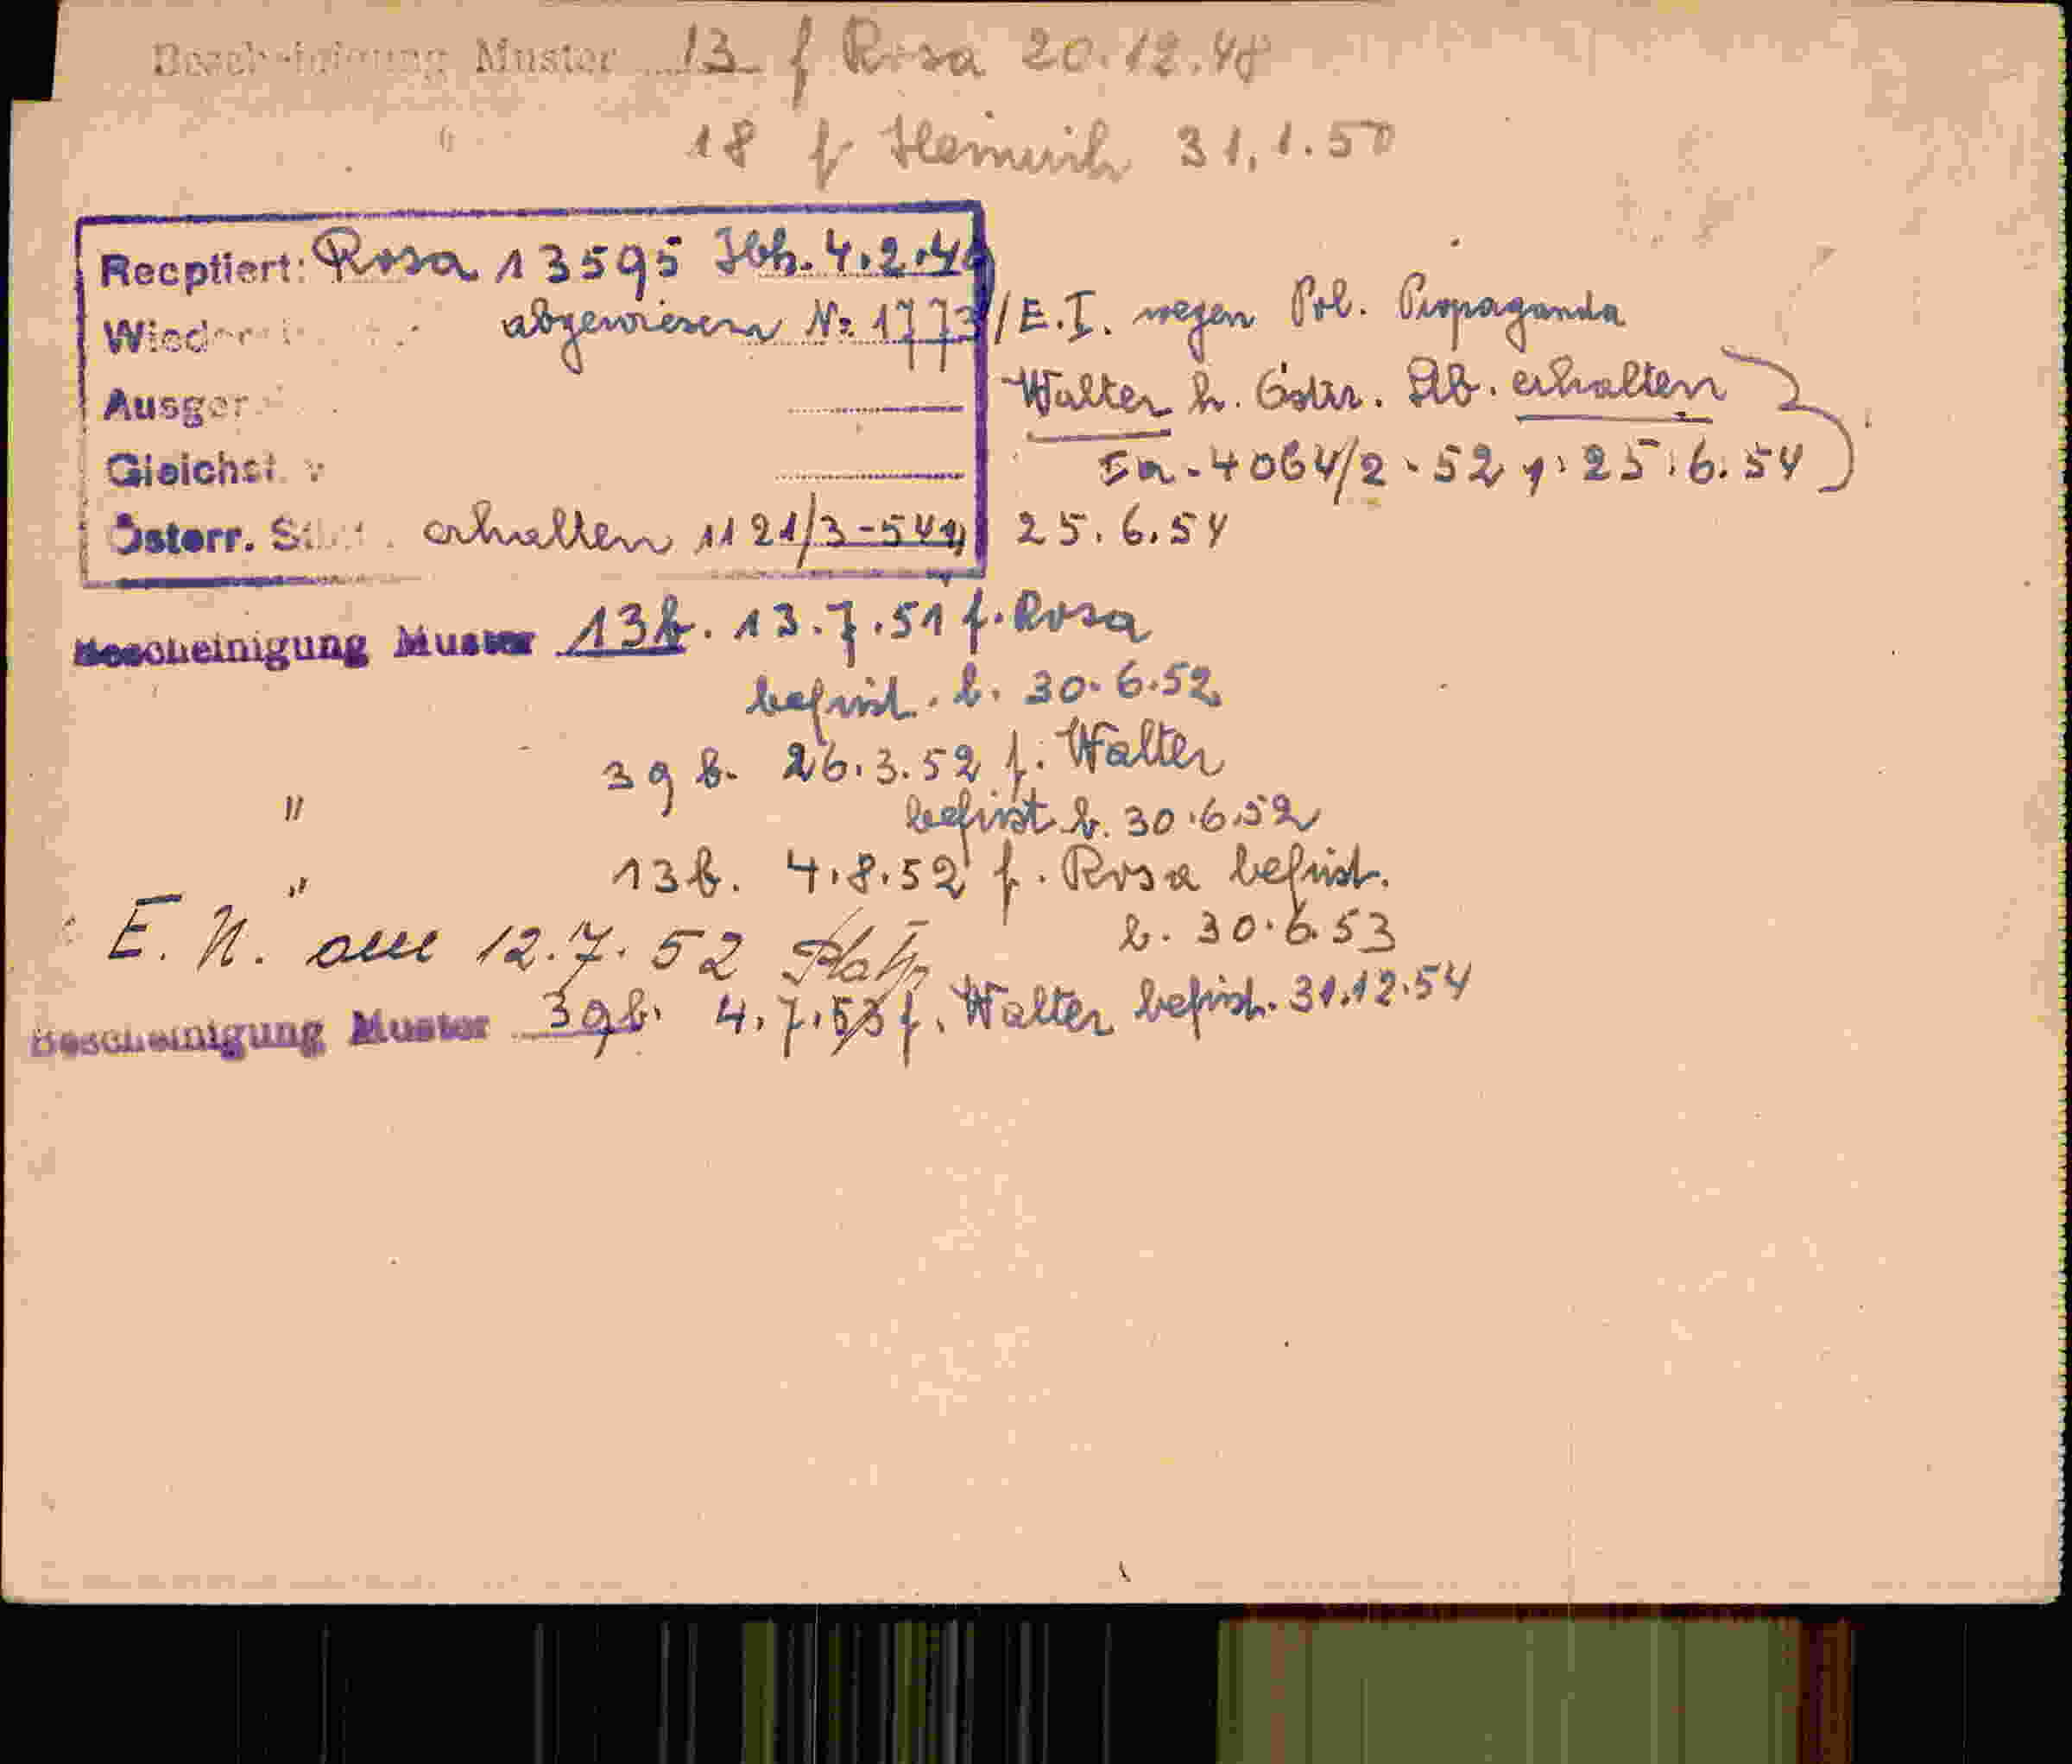 Bescheinigung Muster 13 f Rosa 20.12.48
18 f Heinrich 31.1.50
Recptiert: Rosa 13595 Ibk. 4.2.4
abgewiesen Nr. 1773/E.I. wegen Pol. Propaganda
Ausge
Walter h. Östr. Stb. erhalten
Gleichst. v
Ia-4064/2-52 v. 25.6.54
Österr. St erhalten 1121/3-54 v 25.6.54
Bescheinigung Muster 13 b. 13.7.51 f. Rosa
befrist. b. 30.6.52
" 39 b. 26.3.52 f. Walter
befrist b. 30.6.52
" 13 b. 4.8.52 f. Rosa befrist.
b. 30.6.53
E. N. am 12.7.52
Bescheinigung Muster 39 b. 4.7.53 f. Walter befrist. 31.12.54